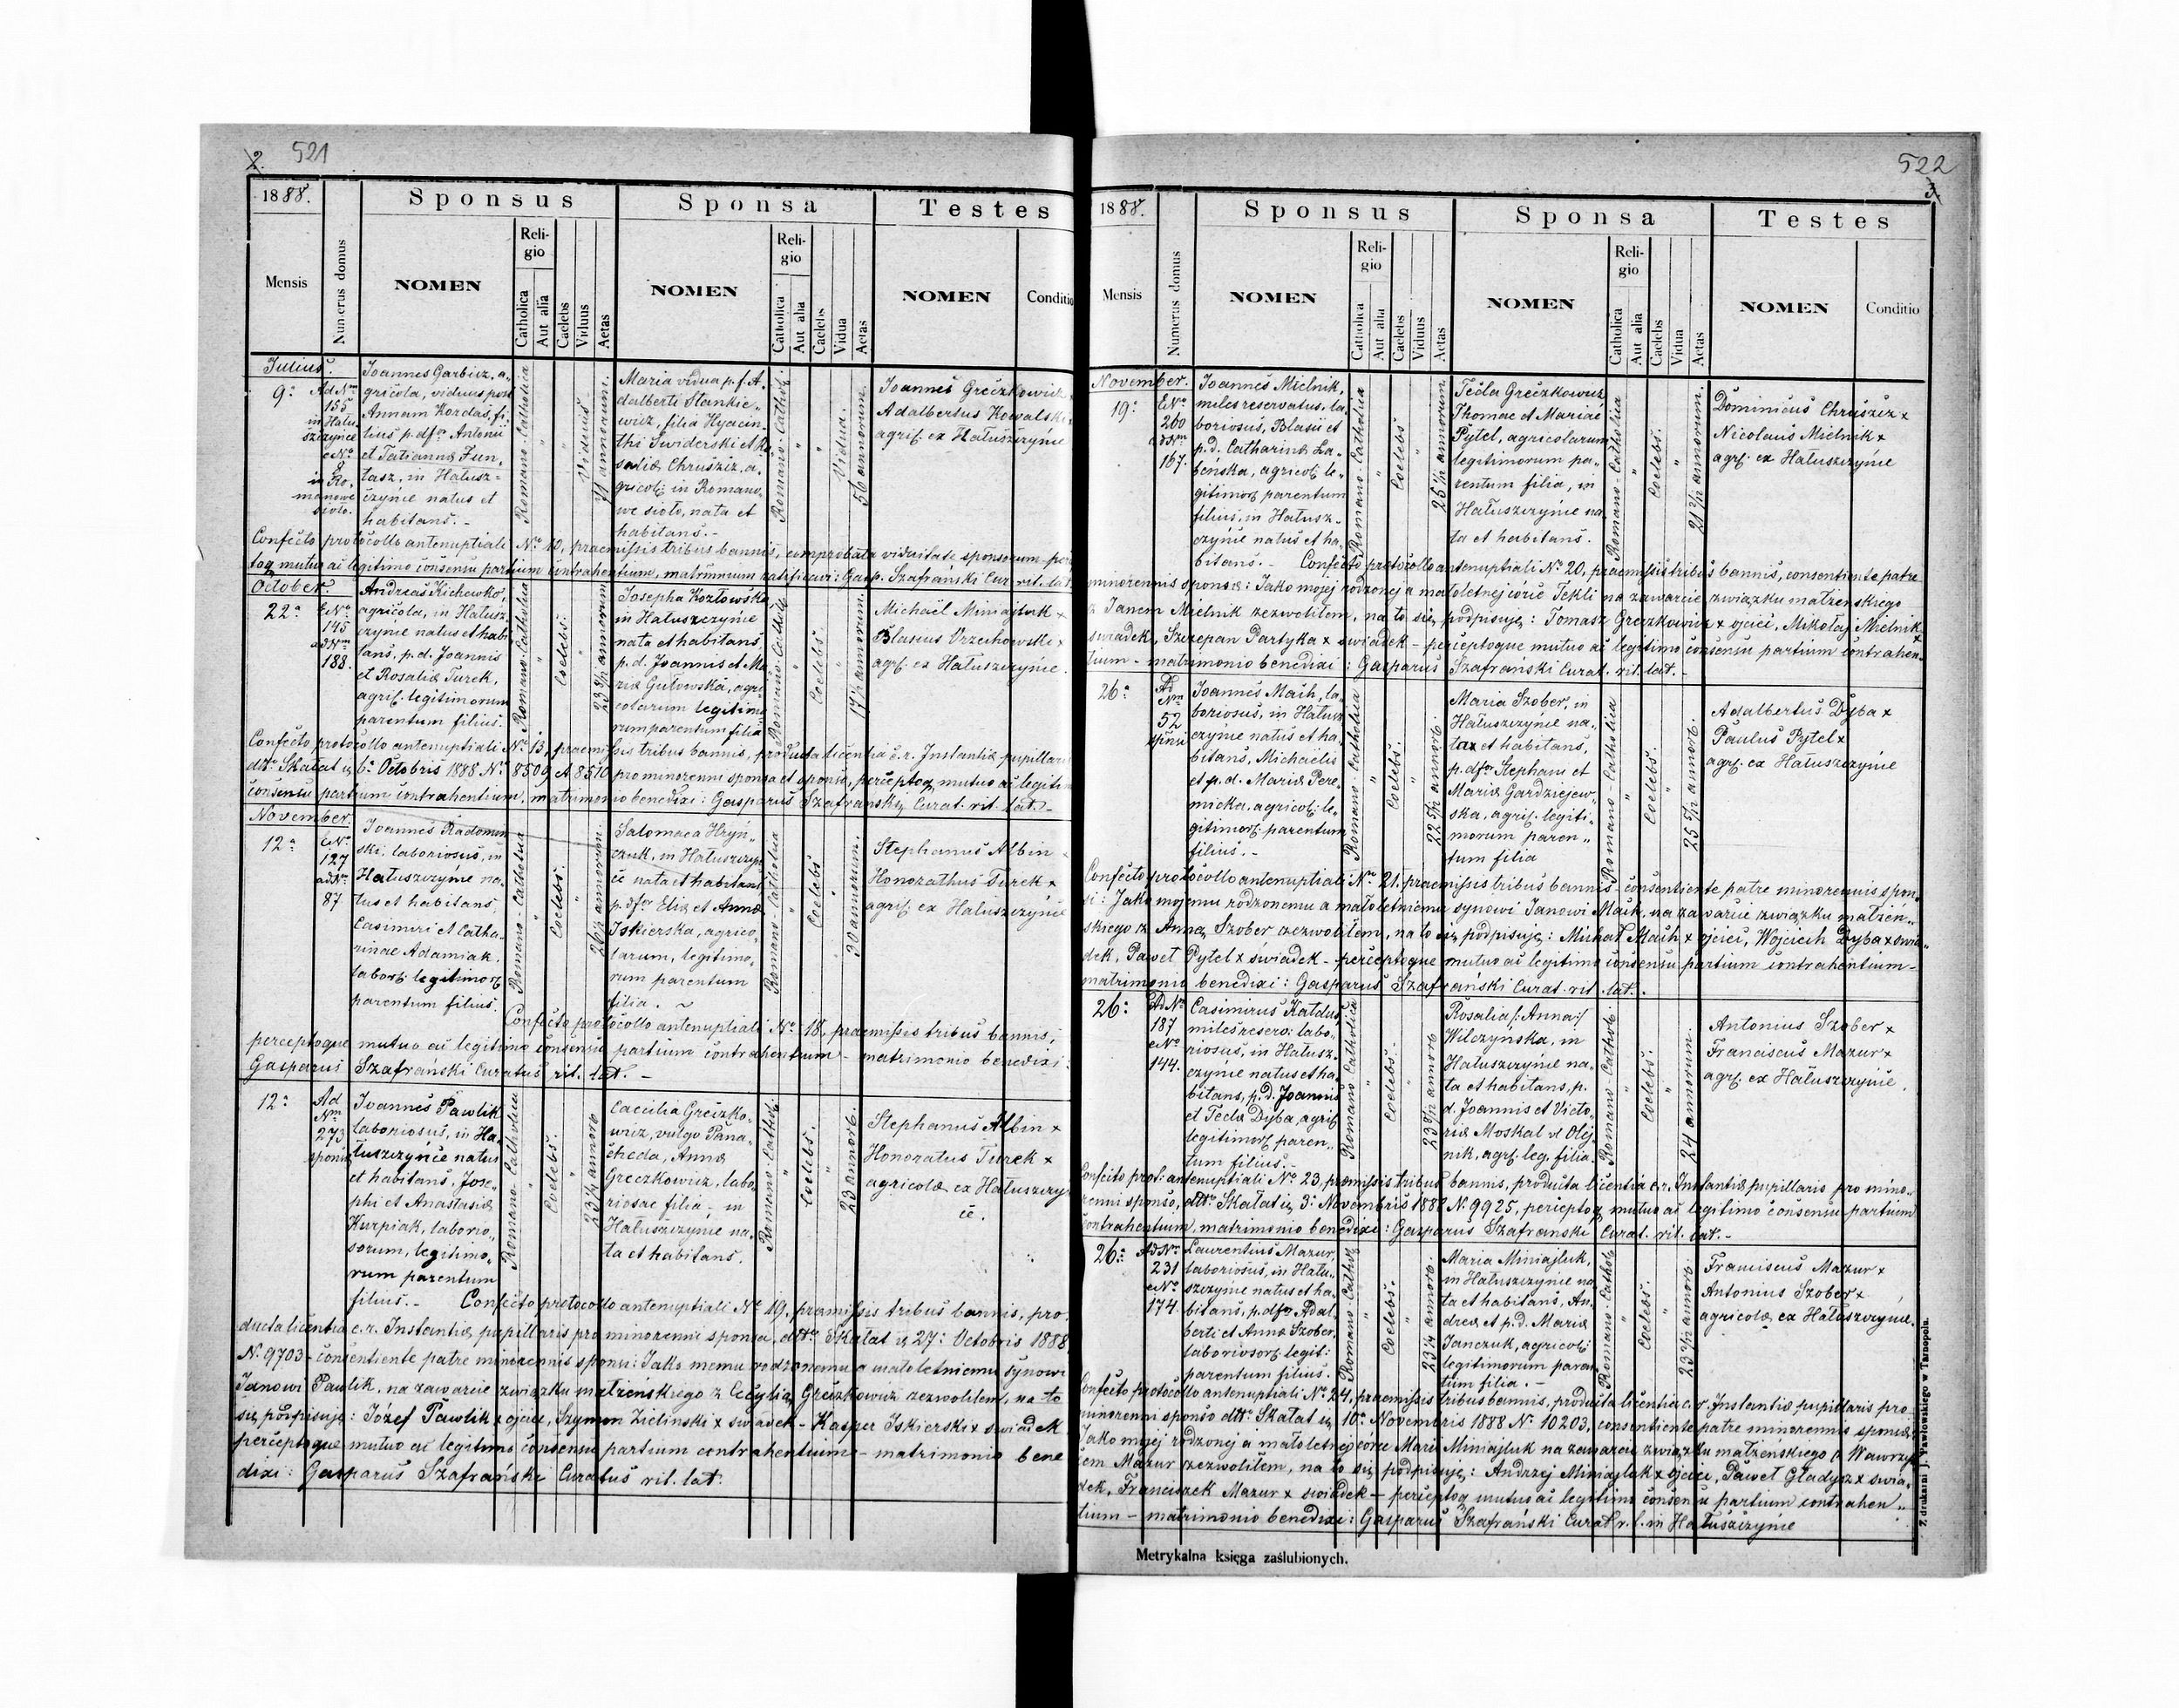 2. 521
1888.
Sponsus
Sponsa
Testes
Mensis
Numerus domus
NOMEN
Religio
Catholica
Aut alia
Caelebs
Viduus
Aetas
NOMEN
Religio
Catholica
Aut alia
Caelebs
Vidua
Aetas
NOMEN
Conditio
Julius.
9a
Ad Nm
155
in Hału
szczyńce
e No
8
in Ro,
manowe
sioło.
Joannes Garbicz, a,,
gricola, viduus post
Annam Kozdas, fi,
lius p. dfor Antonii
et Tatianna Zun,
tasz, in Hałusz=
czyńce natus et
habitans. -
Romano-Catholica
"
"
Viduus
annorum.
Maria vidua p. f. A.
dalberti Stankie,,
wicz, filia Hyacin,
thi Świderski et Ro
salia Chruszcz, a,
gricol: in Romano,,
we sioło, nata et
habitans. -
Romano-Cathol.
"
"
Vidua.
56 annorum.
Joannes Greczkowicz
Adalbertus Kowalski x
agric. ex Hałuszczyńce
Confecto protocollo antenuptiali No 10, praemissis tribus bannis, comprobata viduitate sponsorum, per
toq mutuo ac legitimo consensu partium contrahentium, matrimonium ratificavi: Gasp. Szafrański Cur. rit. lat.
October.
22a
E No
145
ad Nm
188.
Andreas Kichewko,
agricola, in Hałusz
czyńce natus et habi
tans, p. d. Joannis
et Rosalia Turek,
agric. legitimorum
parentum filius.
Romano-Catholica
"
Coelebs.
"
annorum
Josepha Kozłowska
in Hałuszczyńce
nata et habitans
p. d. Joannis et Ma
ria Gutowska, agri
colarum legitimo
rum parentum filia
Romano-Cathol:
"
Coelebs.
"
annorum.
Michaël Miniajluk x
Blasius Wrzechowski x
agric. ex Hałuszczyńce.
Confecto protocollo antenuptiali No 13, praemissis tribus bannis, producta licentia c. r. Instantia pupillari
ddto Skałat 6a Octobris 1888 No 8509 et 8510 pro minorenni sponsa et sponso, perceptoq mutuo ac legiti
consensu partium contrahentium, matrimonio benedixi: Gasparus Szafrański, Curat. rit. lat. -
November.
12a
E No
127
ad No
87
Joannes Radomin
ski, laboriosus, in
Hałuszczyńce na,
tus et habitans,
Casimiri et Catha,
rinae Adamiak.
labor. legitimor.
parentum filius.
Romano-Catholica
"
Coelebs.
"
26½ annorum.
Salomaea Hryń,
czuk, in Hałuszczyń
ce nata et habitans
p. dfor Elia et Anna
Iskierska, agrico,
larum, legitimo,
rum parentum
filia. ~
Romano-Catholica
"
Coelebs
"
30 annorum.
Stephanus Albin x
Honorathus Turek x
agric. ex Hałuszczyńce
Confecto protocollo antenuptiali No 18, praemissis tribus bannis,
perceptoque mutuo ac legitimo consensu partium contrahentium - matrimonio benedixi:
Gasparus Szafrański Curatus rit. lat. -
12a
Ad
Nm
273
sponsi
Joannes Pawlik
laboriosus, in Ha,
łuszczyńce natus
et habitans, Jose,
phi et Anastasia
Kurpiak, laborio,,
sorum, legitimo,
rum parentum
filius. -
Romano-Catholica
"
Coelebs.
"
annor.
Caecilia Greczko,
wicz, vulgo Pana,
cheda, Anna
Greczkowicz, labo,
riosae filia, in
Hałuszczyńce na,
ta et habitans.
Romano-Cathol:
"
Coelebs.
"
23 annor.
Stephanus Albin x
Honoratus Turek x
agricola ex Hałuszczyń
ce.
Confecto protocollo antenuptiali No 19, praemissis tribus bannis, pro,
ducta licentia c. r. Instantia pupillaris pro minorenni sponsa, ddto Skałat 27: Octobris 1888
N. 9703 - consentiente patre minorennis sponsi: Jako memu rodzonemu a małoletniemu synowi
Janowi Pawlik, na zawarcie związku małżeńskiego z Cecylią Greczkowicz zezwoliłem, na to
się podpisuję: Józef Pawlik x ojciec, Szymon Zieliński x świadek - Kasper Iskierski x świadek
perceptoque mutuo ac legitimo consensu partium contrahentium - matrimonio bene
dixi: Gasparus Szafrański Curatus rit. lat.
522
3.
1888.
Sponsus
Sponsa
Testes
Mensis
Numerus domus
NOMEN
Religio
Catholica
Aut alia
Caelebs
Viduus
Aetas
NOMEN
Religio
Catholica
Aut alia
Caelebs
Vidua
Aetas
NOMEN
Conditio
November.
19a
E No
260
ad Nm
167.
Joannes Mielnik,
miles reservatus, la,
boriosus, Blasii et
p. d. Catharina La,
beńska, agricol. le,
gitimor. parentum
filius, in Hałusz,
czyńce natus et ha,
bitans. -
Romano-Catholica
"
Coelebs
"
annorum
Tecla Greczkowicz
Thomae et Mariae
Pytel, agricolarum
legitimorum pa,
rentum filia, in
Hałuszczyńce na,
ta et habitans.
Romano-Catholica
"
Coelebs.
"
annorum.
Dominicus Chruszcz x
Nicolaus Mielnik x
agr. ex Hałuszczyńce
Confecto protocollo antenuptiali No 20, praemissis tribus bannis, consentiente patre
minorennis sponsa: Jako mojej rodzonej a małoletnej córce Tekli na zawarcie związku małżeńskiego
z Janem Mielnik zezwoliłem, na to się podpisuję: Tomasz Greczkowicz x ojciec, Mikołaj Mielnik x
świadek, Szczepan Partyka x świadek - perceptoque mutuo ac legitimo consensu partium contrahen,
tium - matrimonio benedixi: Gasparus Szafrański Curat. rit. lat. -
26a
Ad
Nm
52
sponsi
Joannes Mach, la,
boriosus, in Hałusz
czyńce natus et ha,
bitans, Michaelis
et p. d. Maria Pere,
micka, agricol. le,
gitimor. parentum
filius. -
Romano-Catholica
"
Coelebs.
"
22 5/12 annor.
Maria Szober, in
Hałuszczyńce na,
ta et habitans,
p. dfor Stephani et
Maria Gardziejew,
ska, agric. legiti,
morum paren,,
tum filia
Romano-Catholica
"
Coelebs.
"
25 5/12 annor.
Adalbertus Dyba x
Paulus Pytel x
agr. ex Hałuszczyńce
Confecto protocollo antenuptiali No 21, praemissis tribus bannis - consentiente patre minorennis spon,
si: Jako mojemu rodzonemu a małoletniemu synowi Janowi Mach, na zawarcie związku małżeń,,
skiego z Anną Szober zezwoliłem, na to się podpisuję: Michał Mach x ojciec, Wojciech Dyba x świa,,
dek, Paweł Pytel x świadek - perceptoque mutuo ac legitimo consensu partium contrahentium -
matrimonio benedixi: Gasparus Szafrański Curat. rit. lat. .
26a
Ad No
187
e No
144.
Casimirus Kałdus,
miles reserv: labo,
riosus, in Hałusz,
czyńce natus et ha,
bitans, p. d. Joannis
et Tecla Dyba, agric.
legitimor. paren,,
tum filius. -
Romano Catholica
"
Coelebs
"
annor.
Rosalia /:Anna:/
Wilczynska, in
Hałuszczyńce na,
ta et habitans, p.
d. Joannis et Victo,
ria Moskal vl Olej
nik, agr. leg. filia.
Romano-Cathol:
"
Coelebs.
"
24 annorum.
Antonius Szober x
Franciscus Mazur x
agr. ex Hałuszczyńce.
Confecto prot. antenuptiali No 23, praemissis tribus bannis, producta licentia c. r. Instantia pupillaris pro mino,,
renni sponso, ddto Skałat 3: Novembris 1888 N. 9925, perceptoq mutuo ac legitimo consensu partium
contrahentium, matrimonio benedixi: Gasparus Szafrański Curat. rit. lat. -
26a
Ad Nm
231
e No
174.
Laurentius Mazur,
laboriosus, in Hału,
szczyńce natus et ha,
bitans, p. dfor Adal,
berti et Anna Szober,
laboriosor. legit:
parentum filius.
Romano-Cathol:
"
Coelebs.
"
annor.
Maria Miniajluk,
in Hałuszczyńce na
ta et habitans, An,
drea et p. d. Maria
Janczuk, agricol:
legitimorum paren
tum filia. -
Romano-Cathol:
"
Coelebs.
"
annor.
Franciscus Mazur x
Antonius Szober x
agricola ex Hałuszczyńce.
Confecto protocollo antenuptiali No 24, praemissis tribus bannis, producta licentia c. r. Instantia pupillaris pro
minorenni sponso ddto Skałat 10a Novembris 1888 N. 10203, consentiente patre minorennis sponsa:
Jako mojej rodzonej a małoletnej córce Marii Miniajluk na zawarcie związku małżeńskiego z Wawrzyń
cem Mazur zezwoliłem, na to się podpisuję: Andrzej Miniajluk x ojciec, Paweł Gładysz x świa,
dek, Franciszek Mazur x świadek - perceptoq mutuo ac legitimo consensu partium contrahen,,
tium - matrimonio benedixi: Gasparus Szafrański Curat r. l. in Hałuszczyńce
Metrykalna księga zaślubionych.
Z drukarni J. Pawłowskiego w Tarnopolu.